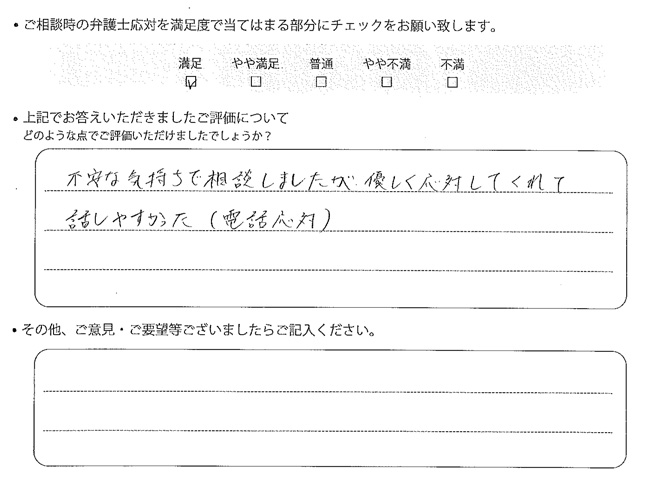 • ご相談時の弁護士応対を満足度で当てはまる部分にチェックをお願い致します。
満足 やや満足 普通 やや不満 不満
☑ ☐ ☐ ☐ ☐
• 上記でお答えいただきましたご評価について
どのような点でご評価いただけましたでしょうか？
不安な気持ちで相談しましたが優しく応対してくれて
話しやすかった（電話応対）
• その他、ご意見・ご要望等ございましたらご記入ください。